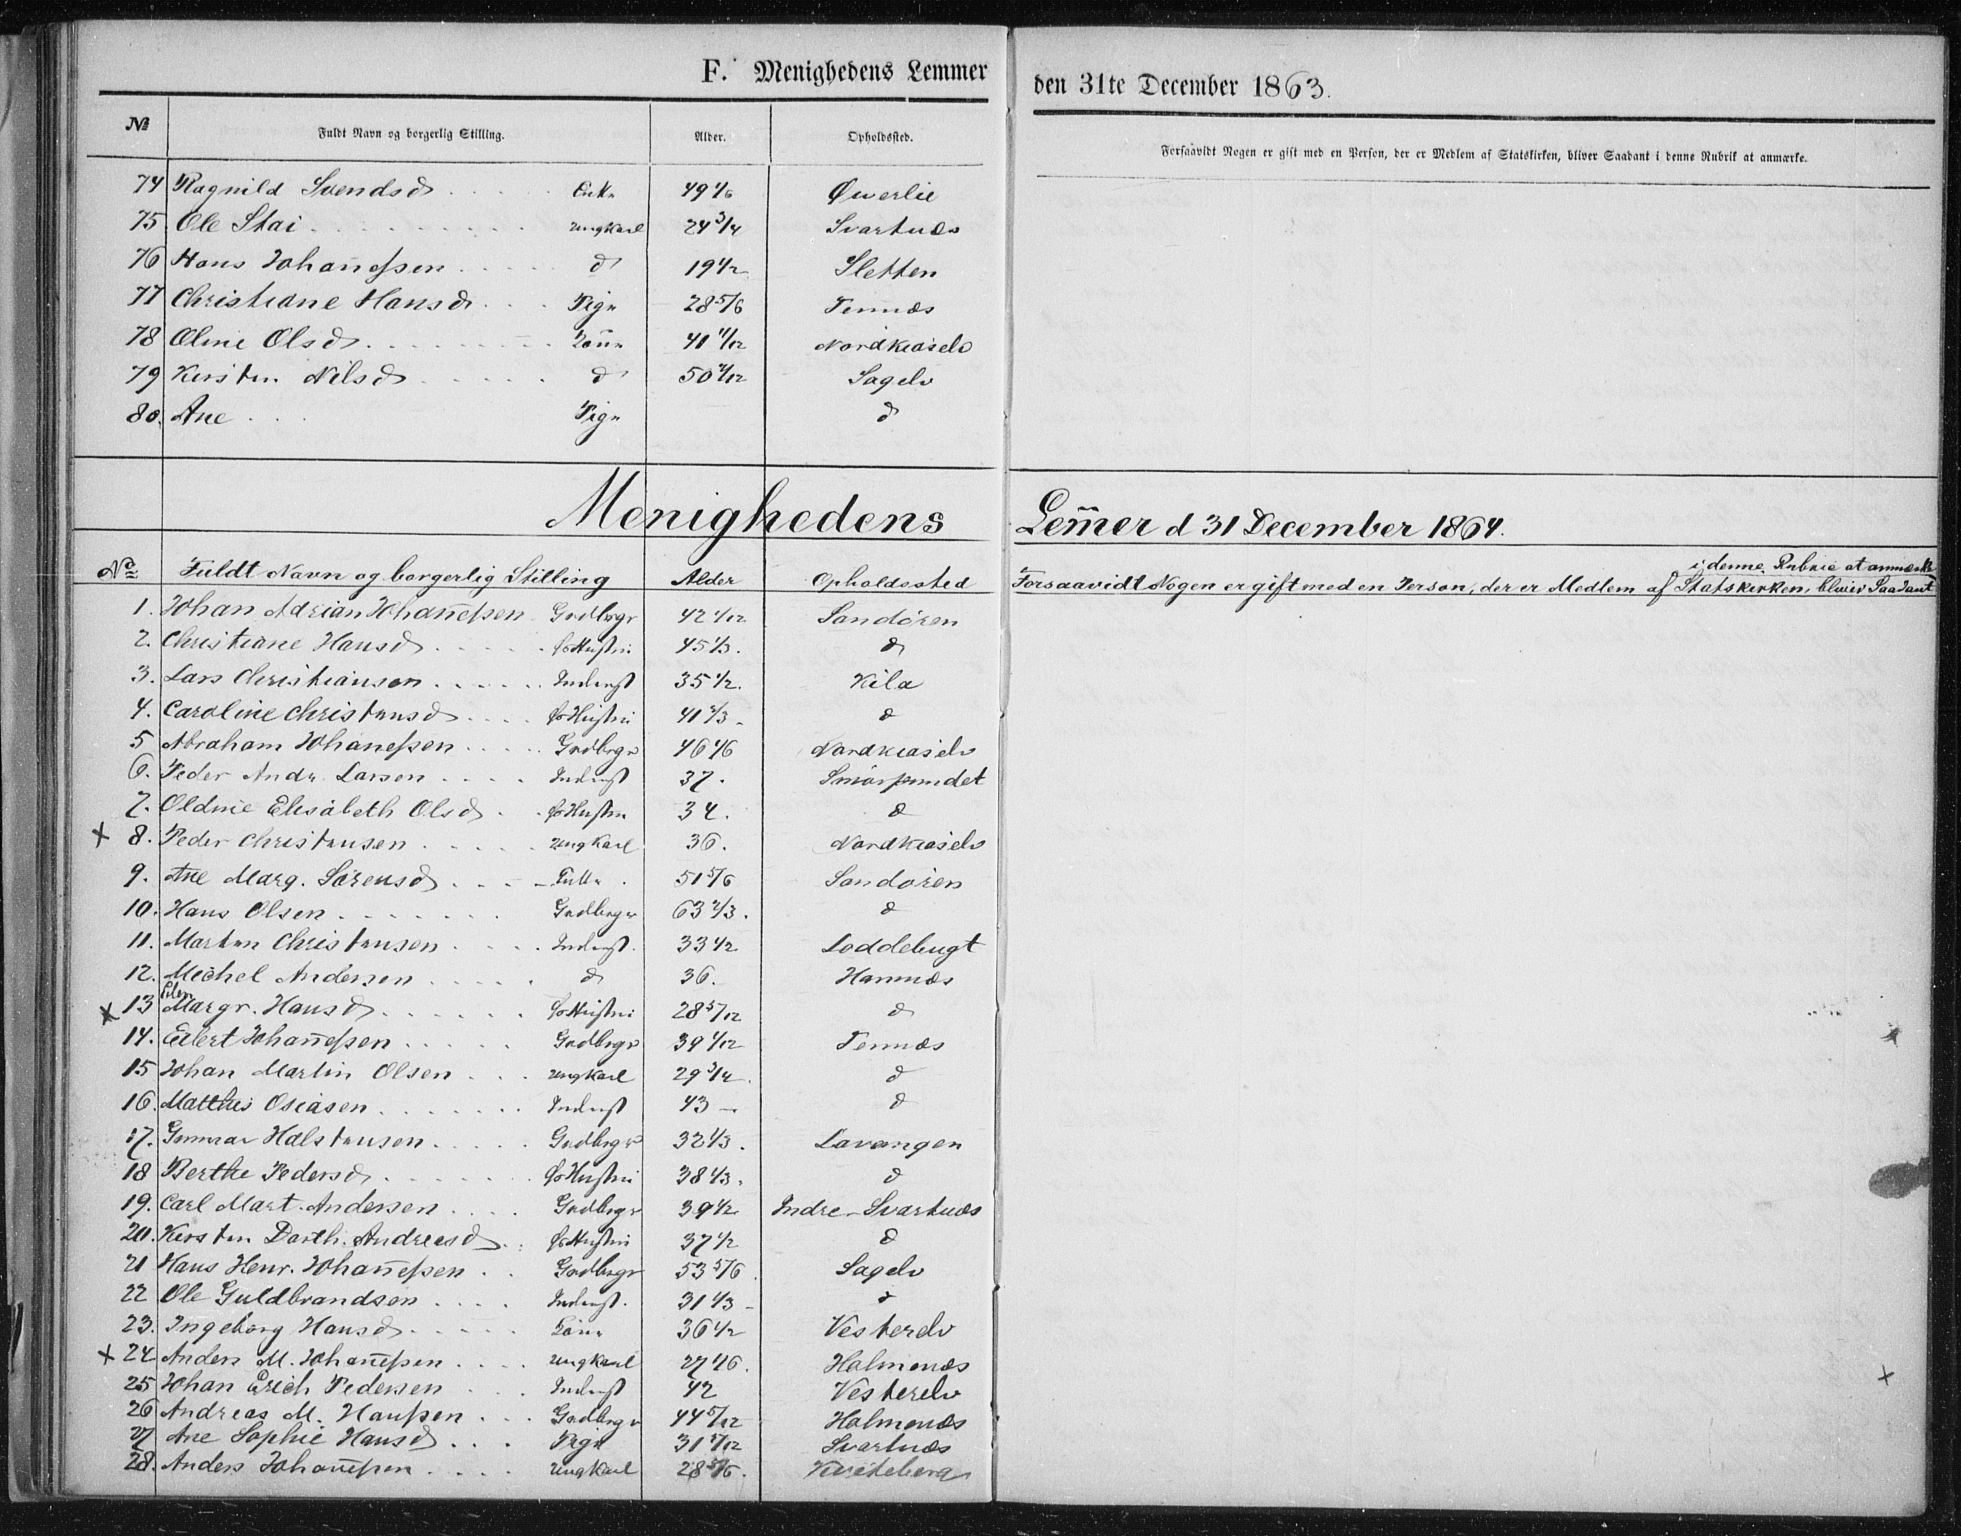 F. Menighedens Lemmer den 31te December 1863.
№ Fuldt Navn og borgerlig Stilling. Alder. Opholdssted. Forsaavidt Nogen er gift med en Person, der er Medlem af Statskirken, bliver Saadant i denne Rubrik at anmærke.
74 Ragnild Svendsd Enke 49 1/6 Øwerlie
75 Ole Stai Ungkarl 24 3/4 Svartnæs
76 Hans Johannessen d 19 1/2 Sletten
77 Christiane Hansd Pige 28 5/6 Tennæs
78 Oline Olsd Kone 40 11/12 Nordkiaselv
79 Kirsten Nilsd d 50 Sagelv
80. Ane Pige d
Menighedens Lem̄er d 31 December 1864.
No Fuldt Navn og borgerlig Stilling Alder Opholdssted Forsaavidt Nogen er gift med en Person, der er Medlem af Statskirken, bliver Saadant
i denne Rubric at anmærke
1. Johan Adrian Johan̄essen Grdbrgr 42 Sandören
2. Christiane Hansd Hustru 45 1/3. d
3. Lars Christiansen Inderst 35 1/2. Kila
4. Caroline Christensd Hustru 41 2/3 d
5 Abraham Johanessen Grdbrgr 46 1/6 Nordkiaselv
6. Peder Andr. Larsen Inderst 37. Smörpundet
7. Oldine Elisabeth Olsd Hustru 34. d
x 8. Peder Christensen Ungkarl 36. Nordkiaselv
9. Ane Marg. Sörensd 51 5/6 Sandören
10. Hans Olsen Grdbrgr 63 2/3. d
11. Marten Christensen Inderst. 33 1/2 Loddebugt
12. Michel Andersen d 36. Hamnæs
x 13 Elen Margr. Hansd Hustru 28 5/12 d
14. Eilert Johan̄essen Grdbrgr 39 1/12 Tennæs
15 Johan Martin Olsen Ungkarl 29 3/4. d
16. Matthis Oseasen Inderst 43 d
17. Gunnar Halstensen Grdbrgr 32 1/3. Lavangen
18 Berthe Pedersd Hustru 38 1/3. d
19. Carl Mart. Andersen Grdbrgr 39 1/2 Indre-Svartnæs
20. Kirsten Dorth. Andreasd Hustru 37 1/2 d
21 Hans Henr. Johan̄essen Grdbrgr 53 5/6. Sagelv
22 Ole Guldbrandsen Inderst. 31 1/3 d
23. Ingeborg Hansd Kone 36 1/2 Vesterelv
x 24 Anders M. Johan̄essen Ungkarl 27 1/6. Holmenæs x
25 Johan Erich Pedersen Inderst 42 Vesterelv
26 Andreas M. Hanssen Grdbrgr 44 5/12 Holmenæs
27 Ane Sophie Hansd Pige 31 Svartnæs
28. Anders Johan̄essen Ungkarl 28 5/6. Kviteberg